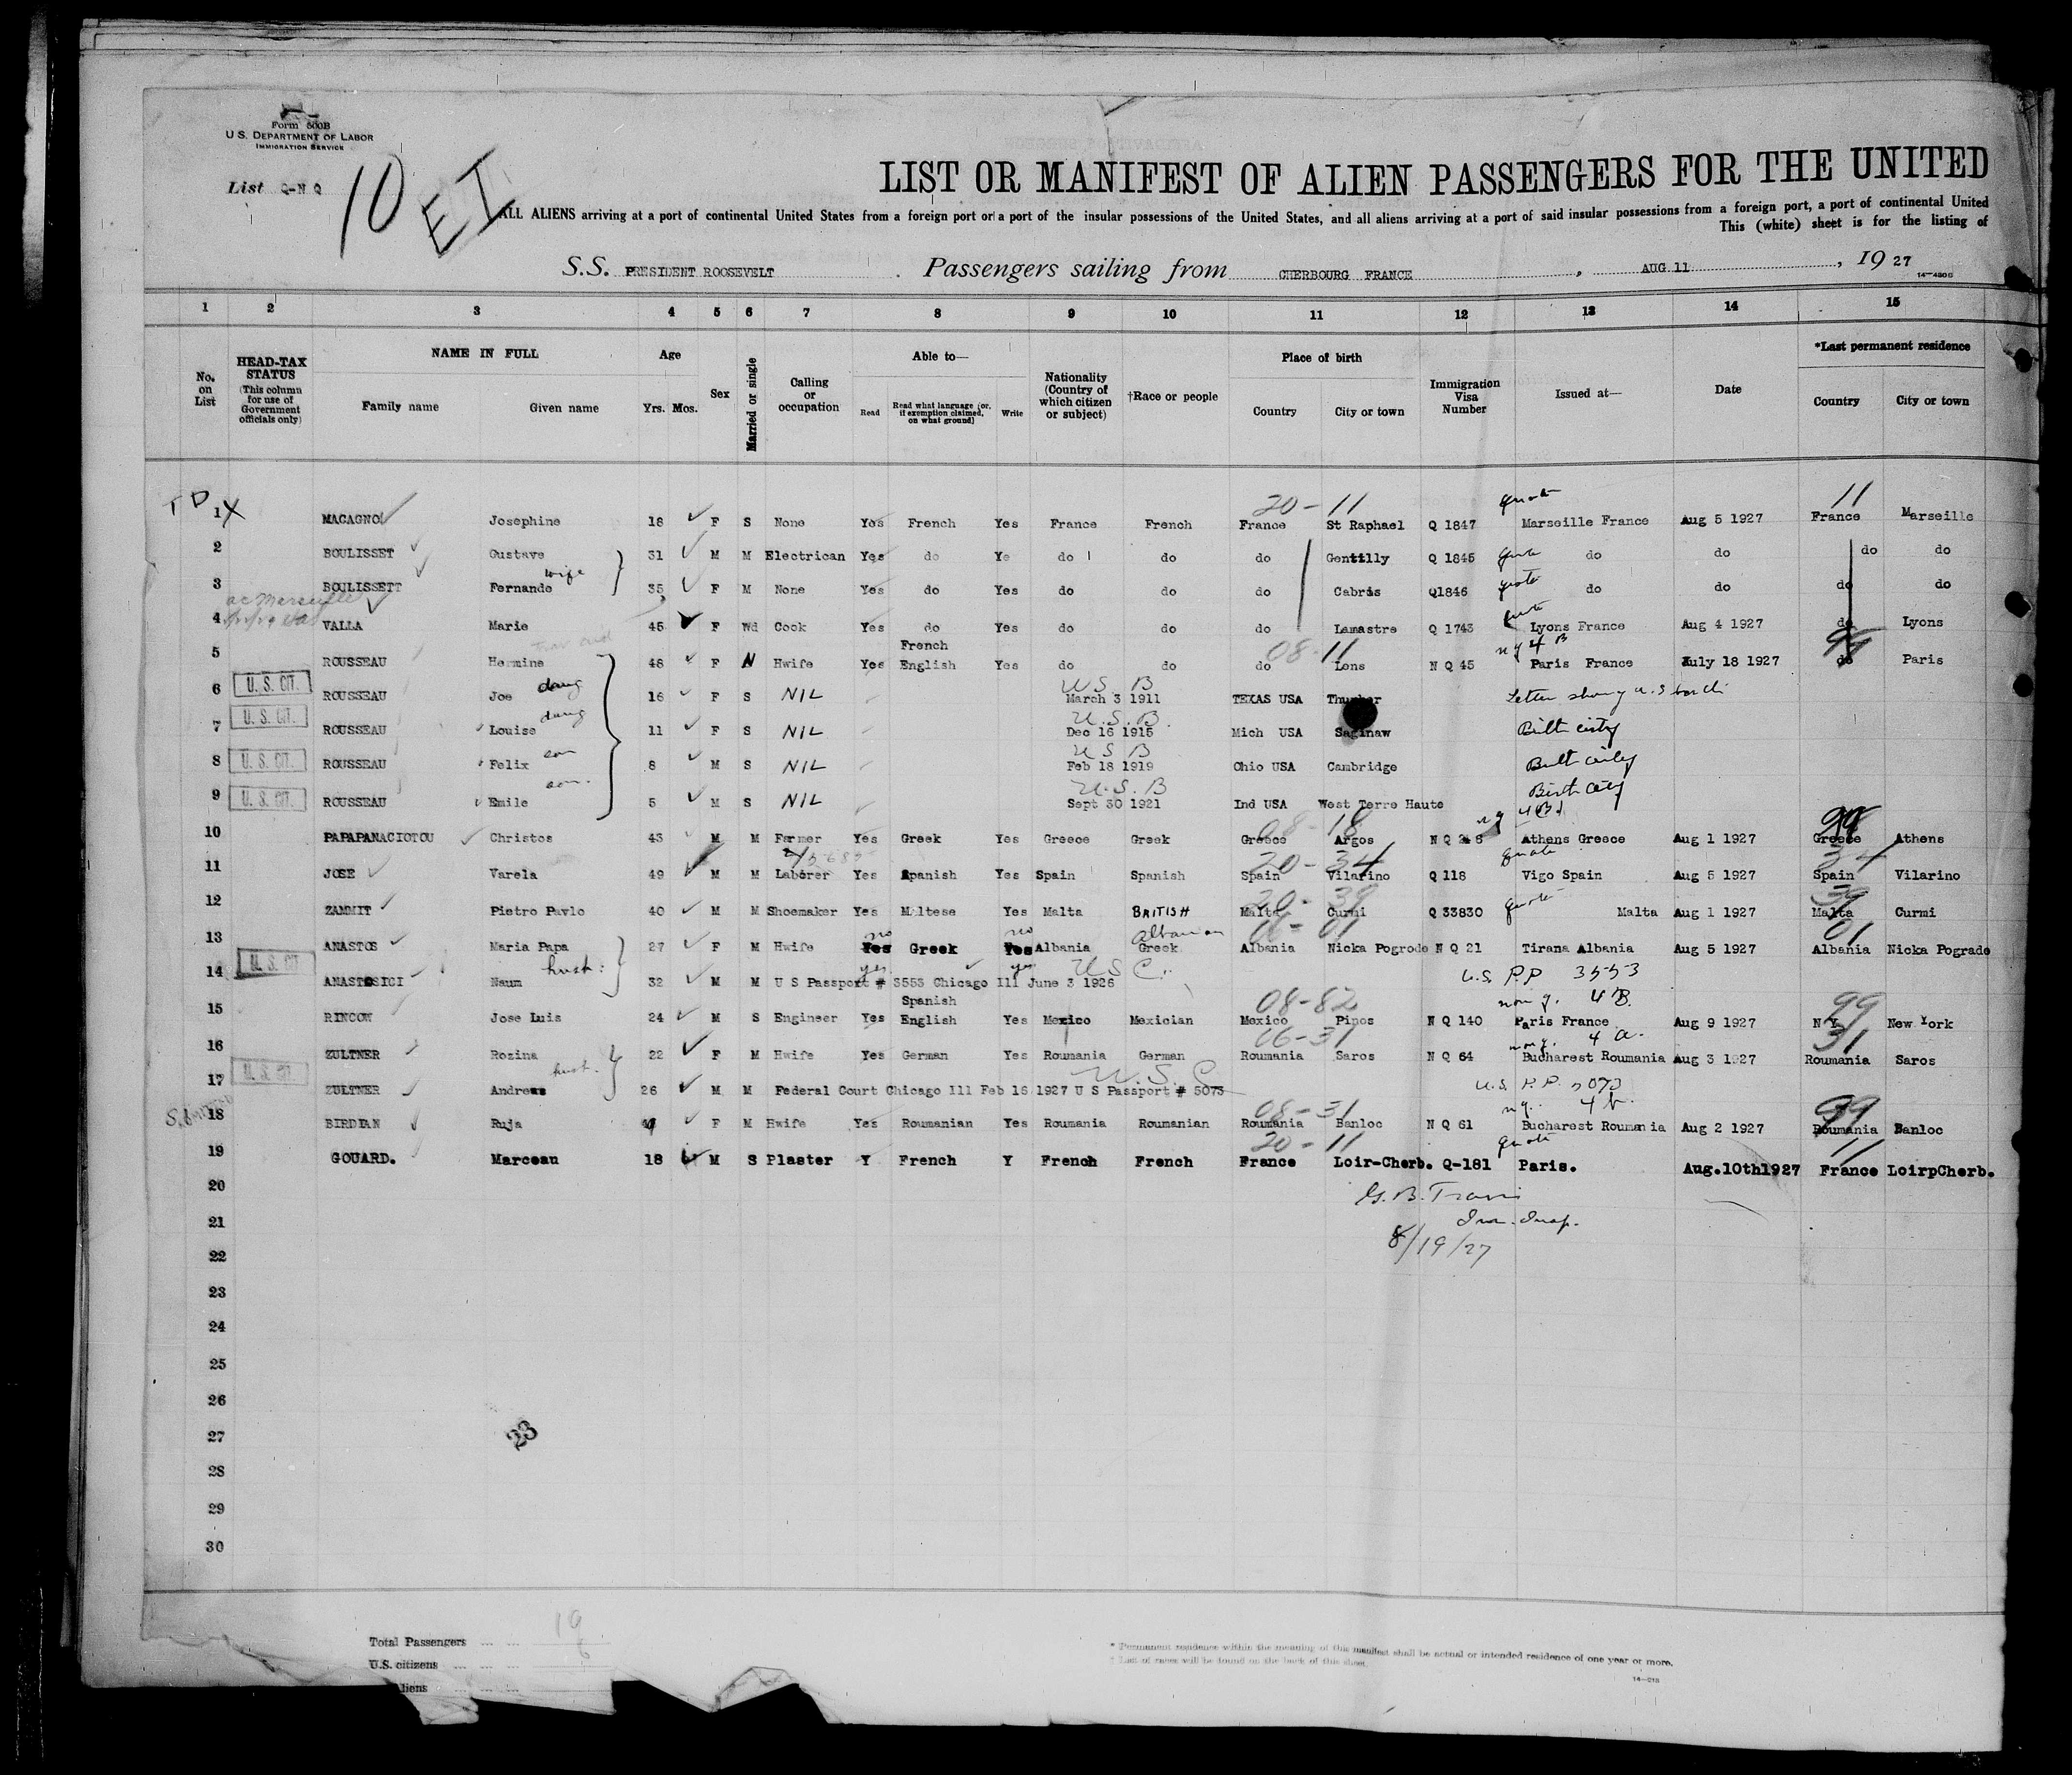 Form 500B
U. S. DEPARTMENT OF LABOR
IMMIGRATION SERVICE
List Q-N Q
10
EI
LIST OR MANIFEST OF ALIEN PASSENGERS FOR THE UNITED
ALL ALIENS arriving at a port of continental United States from a foreign port or a port of the insular possessions of the United States, and all aliens arriving at a port of said insular possessions from a foreign port, a port of continental United
This (white) sheet is for the listing of
S.S. PRESIDENT ROOSEVELT Passengers sailing from CHERBOURG FRANCE, AUG 11, 19 27
1 2 3 4 5 6 7 8 9 10 11 12 13 14 15
No. on List
HEAD-TAX STATUS (This column for use of Government officials only)
NAME IN FULL Family name Given name
Age Yrs. Mos.
Sex
Married or single
Calling or occupation
Able to— Read Read what language (or, if exemption claimed, on what ground) Write
Nationality (Country of which citizen or subject)
†Race or people
Place of birth Country City or town
Immigration Visa Number
Issued at—
Date
*Last permanent residence Country City or town
T D X 20-11 quota 11
1 MACAGNO Josephine 18 F S None Yes French Yes France French France St Raphael Q 1847 Marseille France Aug 5 1927 France Marseille
2 BOULISSET Gustave 31 M M Electrican Yes do Ye do do do Gentilly Q 1845 quota do do do do
wife
3 BOULISSETT Fernande 35 F M None Yes do Yes do do do Cabris Q1846 quota do do do do
ac Marseille
4 VALLA Marie 45 F Wd Cook Yes do Yes do do do Lamastre Q 1743 quota Lyons France Aug 4 1927 do Lyons
French 08-11 nq 4 B 99
5 ROUSSEAU Hermine 48 F M Hwife Yes English Yes do do do Lens N Q 45 Paris France July 18 1927 do Paris
U. S. CIT. daug U S B
6 ROUSSEAU Joe 16 F S NIL March 3 1911 TEXAS USA Thurber Letter showing U.S birth
U. S. CIT. daug U.S.B.
7 ROUSSEAU Louise 11 F S NIL Dec 16 1915 Mich USA Saginaw
U. S. CIT. son U S B
8 ROUSSEAU Felix 8 M S NIL Feb 18 1919 Ohio USA Cambridge
U. S. CIT. son U.S.B
9 ROUSSEAU Emile 5 M S NIL Sept 30 1921 Ind USA West Terre Haute
08-18 nq 99
10 PAPAPANACIOTOU Christos 43 M M Farmer Yes Greek Yes Greece Greek Greece Argos N Q Athens Greece Aug 1 1927 Greece Athens
20-34 quota 34
11 JOSE Varela 49 M M Laborer Yes Spanish Yes Spain Spanish Spain Vilarino Q 118 Vigo Spain Aug 5 1927 Spain Vilarino
20-39 quota 39
12 ZAMMIT Pietro Pavlo 40 M M Shoemaker Yes Maltese Yes Malta BRITISH Malta Curmi Q 33830 Malta Aug 1 1927 Malta Curmi
no no Albanian 01
13 ANASTOS Maria Papa 27 F M Hwife Yes Greek Yes Albania Greek Albania Nicka Pogrode N Q 21 Tirana Albania Aug 5 1927 Albania Nicka Pograde
U. S. CIT husb: yes yes U S C. U.S. P.P 3553
14 ANASTOSICI Naum 32 M M U S Passport # 3553 Chicago Ill June 3 1926
Spanish 08-82 non q. 4 B. 99
15 RINCON Jose Luis 24 M S Engineer Yes English Yes Mexico Mexician Mexico Pinos N Q 140 Paris France Aug 9 1927 N Y New York
06-31 non q. 4 a. 31
16 ZULTNER Rozina 22 F M Hwife Yes German Yes Roumania German Roumania Saros N Q 64 Bucharest Roumania Aug 3 1927 Roumania Saros
U. S. CIT. husb. U.S.C U.S. P.P. 5073
17 ZULTNER Andreas 26 M M Federal Court Chicago Ill Feb 16 1927 U S Passport # 5073
08-31 nq. 4 b. 99
18 BIRDEAN Ruja F M Hwife Yes Roumanian Yes Roumania Roumanian Roumania Banloc N Q 61 Bucharest Roumania Aug 2 1927 Roumania Banloc
20-11 quota 11
19 GOUARD. Marceau 18 M S Plaster Y French Y French French France Loir-Cherb. Q-181 Paris. Aug.10th1927 France LoirpCherb.
20 G. B. Travis
21 Imm. Insp.
22 8/19/27
23
24
25
26
27 23
28
29
30
Total Passengers 19
U.S. citizens 6
Aliens
* Permanent residence within the meaning of this manifest shall be actual or intended residence of one year or more.
† List of races will be found on the back of this sheet.